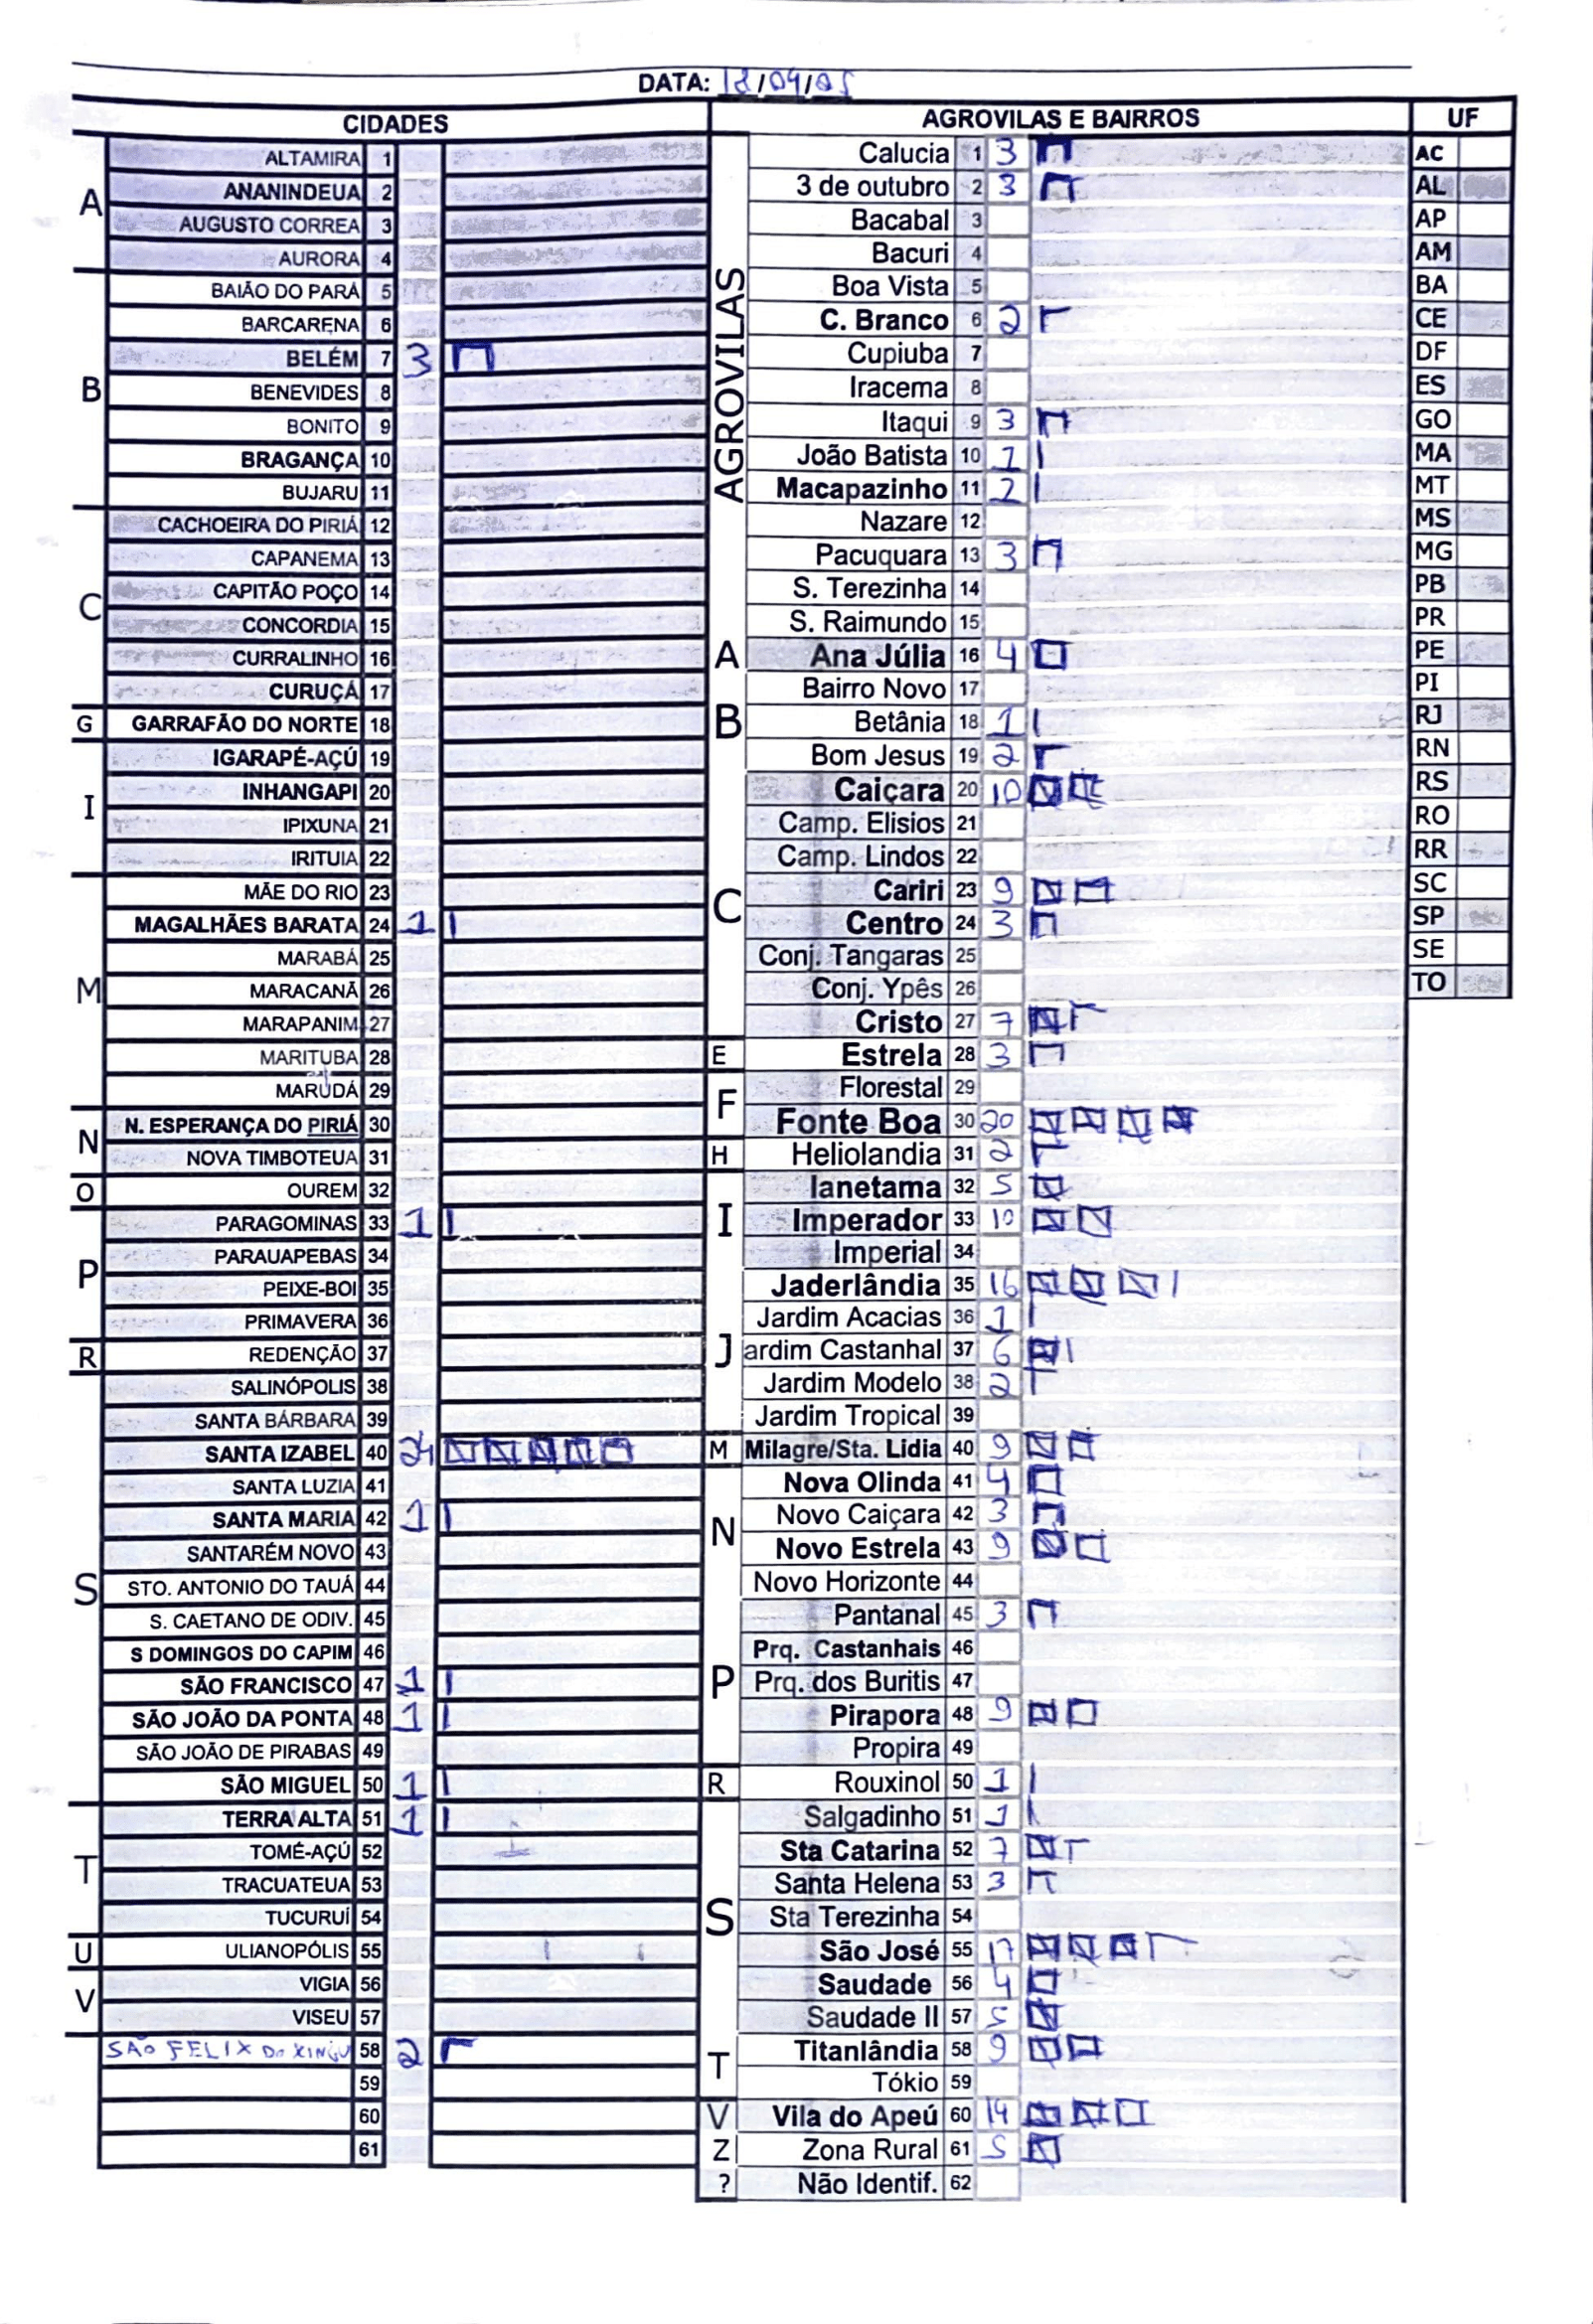 DATA: 18/04/05
CIDADES
A
ALTAMIRA 1
ANANINDEUA 2
AUGUSTO CORREA 3
AURORA 4
B
BAIÃO DO PARÁ 5
BARCARENA 6
BELÉM 7 3
BENEVIDES 8
BONITO 9
BRAGANÇA 10
BUJARU 11
C
CACHOEIRA DO PIRIÁ 12
CAPANEMA 13
CAPITÃO POÇO 14
CONCORDIA 15
CURRALINHO 16
CURUÇÁ 17
G GARRAFÃO DO NORTE 18
I
IGARAPÉ-AÇÚ 19
INHANGAPI 20
IPIXUNA 21
IRITUIA 22
M
MÃE DO RIO 23
MAGALHÃES BARATA 24 1
MARABÁ 25
MARACANÃ 26
MARAPANIM 27
MARITUBA 28
MARUDÁ 29
N
N. ESPERANÇA DO PIRIÁ 30
NOVA TIMBOTEUA 31
O OUREM 32
P
PARAGOMINAS 33 1
PARAUAPEBAS 34
PEIXE-BOI 35
PRIMAVERA 36
R REDENÇÃO 37
S
SALINÓPOLIS 38
SANTA BÁRBARA 39
SANTA IZABEL 40 24
SANTA LUZIA 41
SANTA MARIA 42 1
SANTARÉM NOVO 43
STO. ANTONIO DO TAUÁ 44
S. CAETANO DE ODIV. 45
S DOMINGOS DO CAPIM 46
SÃO FRANCISCO 47 1
SÃO JOÃO DA PONTA 48 1
SÃO JOÃO DE PIRABAS 49
SÃO MIGUEL 50 1
T
TERRA ALTA 51 1
TOMÉ-AÇÚ 52
TRACUATEUA 53
TUCURUÍ 54
U ULIANOPÓLIS 55
V
VIGIA 56
VISEU 57
SÃO FELIX DO XINGU 58 2
59
60
61
AGROVILAS E BAIRROS
AGROVILAS
Calucia 1 3
3 de outubro 2 3
Bacabal 3
Bacuri 4
Boa Vista 5
C. Branco 6 2
Cupiuba 7
Iracema 8
Itaqui 9 3
João Batista 10 1
Macapazinho 11 2
Nazare 12
Pacuquara 13 3
S. Terezinha 14
S. Raimundo 15
A Ana Júlia 16 4
Bairro Novo 17
B Betânia 18 1
Bom Jesus 19 2
C
Caiçara 20 10
Camp. Elisios 21
Camp. Lindos 22
Cariri 23 9
Centro 24 3
Conj. Tangaras 25
Conj. Ypês 26
Cristo 27 7
E Estrela 28 3
F
Florestal 29
Fonte Boa 30 20
H Heliolandia 31 2
I
Ianetama 32 5
Imperador 33 10
Imperial 34
Jaderlândia 35 16
Jardim Acacias 36 1
Jardim Castanhal 37 6
Jardim Modelo 38 2
Jardim Tropical 39
M Milagre/Sta. Lidia 40 9
N
Nova Olinda 41 4
Novo Caiçara 42 3
Novo Estrela 43 9
Novo Horizonte 44
P
Pantanal 45 3
Prq. Castanhais 46
Prq. dos Buritis 47
Pirapora 48 9
Propira 49
R Rouxinol 50 1
S
Salgadinho 51 1
Sta Catarina 52 7
Santa Helena 53 3
Sta Terezinha 54
São José 55 17
Saudade 56 4
Saudade II 57 5
T
Titanlândia 58 9
Tókio 59
V Vila do Apeú 60 14
Z Zona Rural 61 5
? Não Identif. 62
UF
AC
AL
AP
AM
BA
CE
DF
ES
GO
MA
MT
MS
MG
PB
PR
PE
PI
RJ
RN
RS
RO
RR
SC
SP
SE
TO